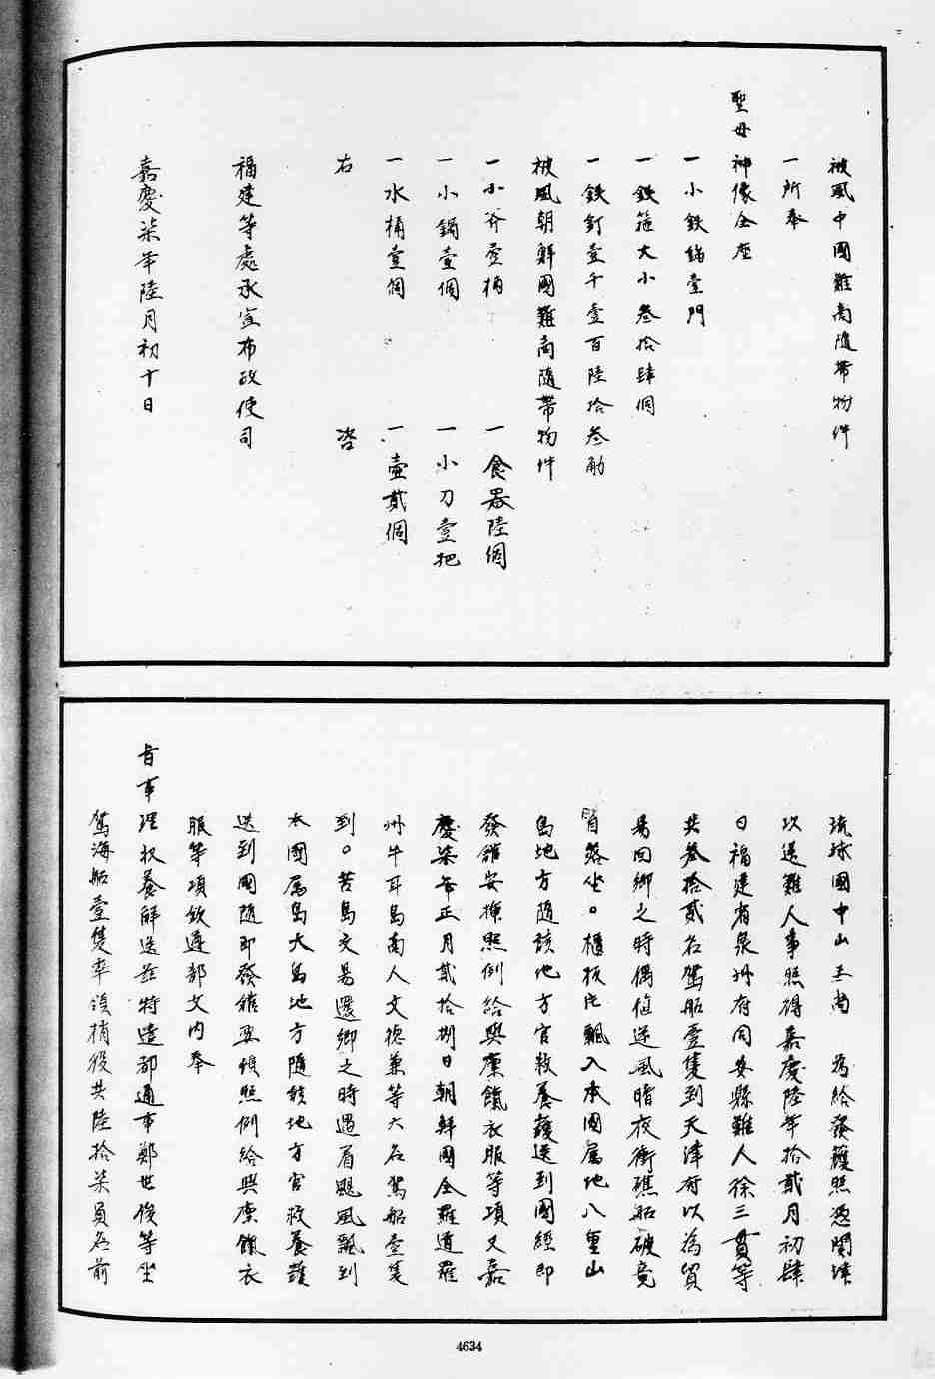 被風中國難商隨帶物件
一所奉
聖母神像全座
一小鉄鍋壹門
一鉄箍大小叁拾肆個
一鉄釘壹千壹百陸拾叁觔
被風朝鮮國難商隨帶物件
一小斧壹柄 一食器陸個
一小鍋壹個 一小刀壹把
一水桶壹個 一壷貳個
右 咨
福建等處承宣布政使司
嘉慶柒年陸月初十日
琉球國中山王尚 為給發護照憑関津
以送難人事照得嘉慶陸年拾貳月初肆
日福建省泉州府同安縣難人徐三貫等
共叁拾貳名駕船壹隻到天津府以為貿
易回鄉之時偶值逆風暗夜衝礁船破竟
自落坐。櫃板片飄入本國屬地八重山
島地方隨該地方官救養護送到國經即
發館安揷照例給與廩餼衣服等項又嘉
慶柒年正月貳拾捌日朝鮮國全羅道羅
州牛耳島商人文德兼等六名駕船壹隻
到。苦島交易還鄉之時遇着颶風飄到
本國屬島大島地方隨該地方官救養護
送到國隨即發館安頓照例給與廩餼衣
服等項欽遵部文內奉
旨事理收養解送茲特遣都通事鄭世俊等坐
駕海船壹隻率領梢役共陸拾柒員名前
4634